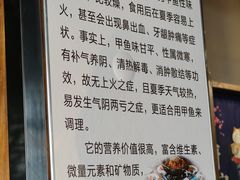 比较燥，食用后在夏季容易上
火，甚至会出现鼻出血、
牙龈肿痛等症
状。事实上，甲鱼味甘平、性属微寒，
有补气养阴、清热解毒、消肿散结等功
效，故无上火之症，且夏季天气较热，
易发生气阴两亏之症，更适合用甲鱼来
调理。
它的营养价值很高，富含维生素、
微量元素和矿物质，